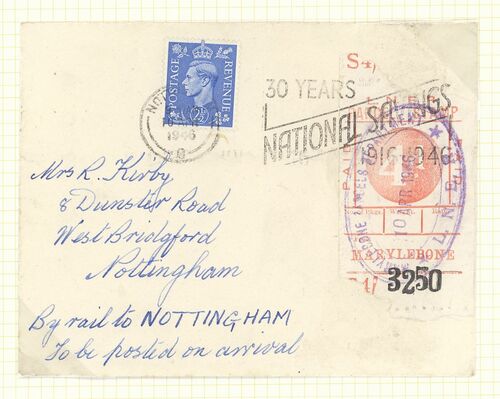 POSTAGE REVENUE
2½D
1946
30 YEARS
NATIONAL SAVINGS
1916 1946
S4
PAID
4d
10 APR 1946
L.N.E.R.
MARYLEBONE
3250
Mrs R. Kirby
8 Dunster Road
West Bridgford
Nottingham
By rail to NOTTINGHAM
To be posted on arrival